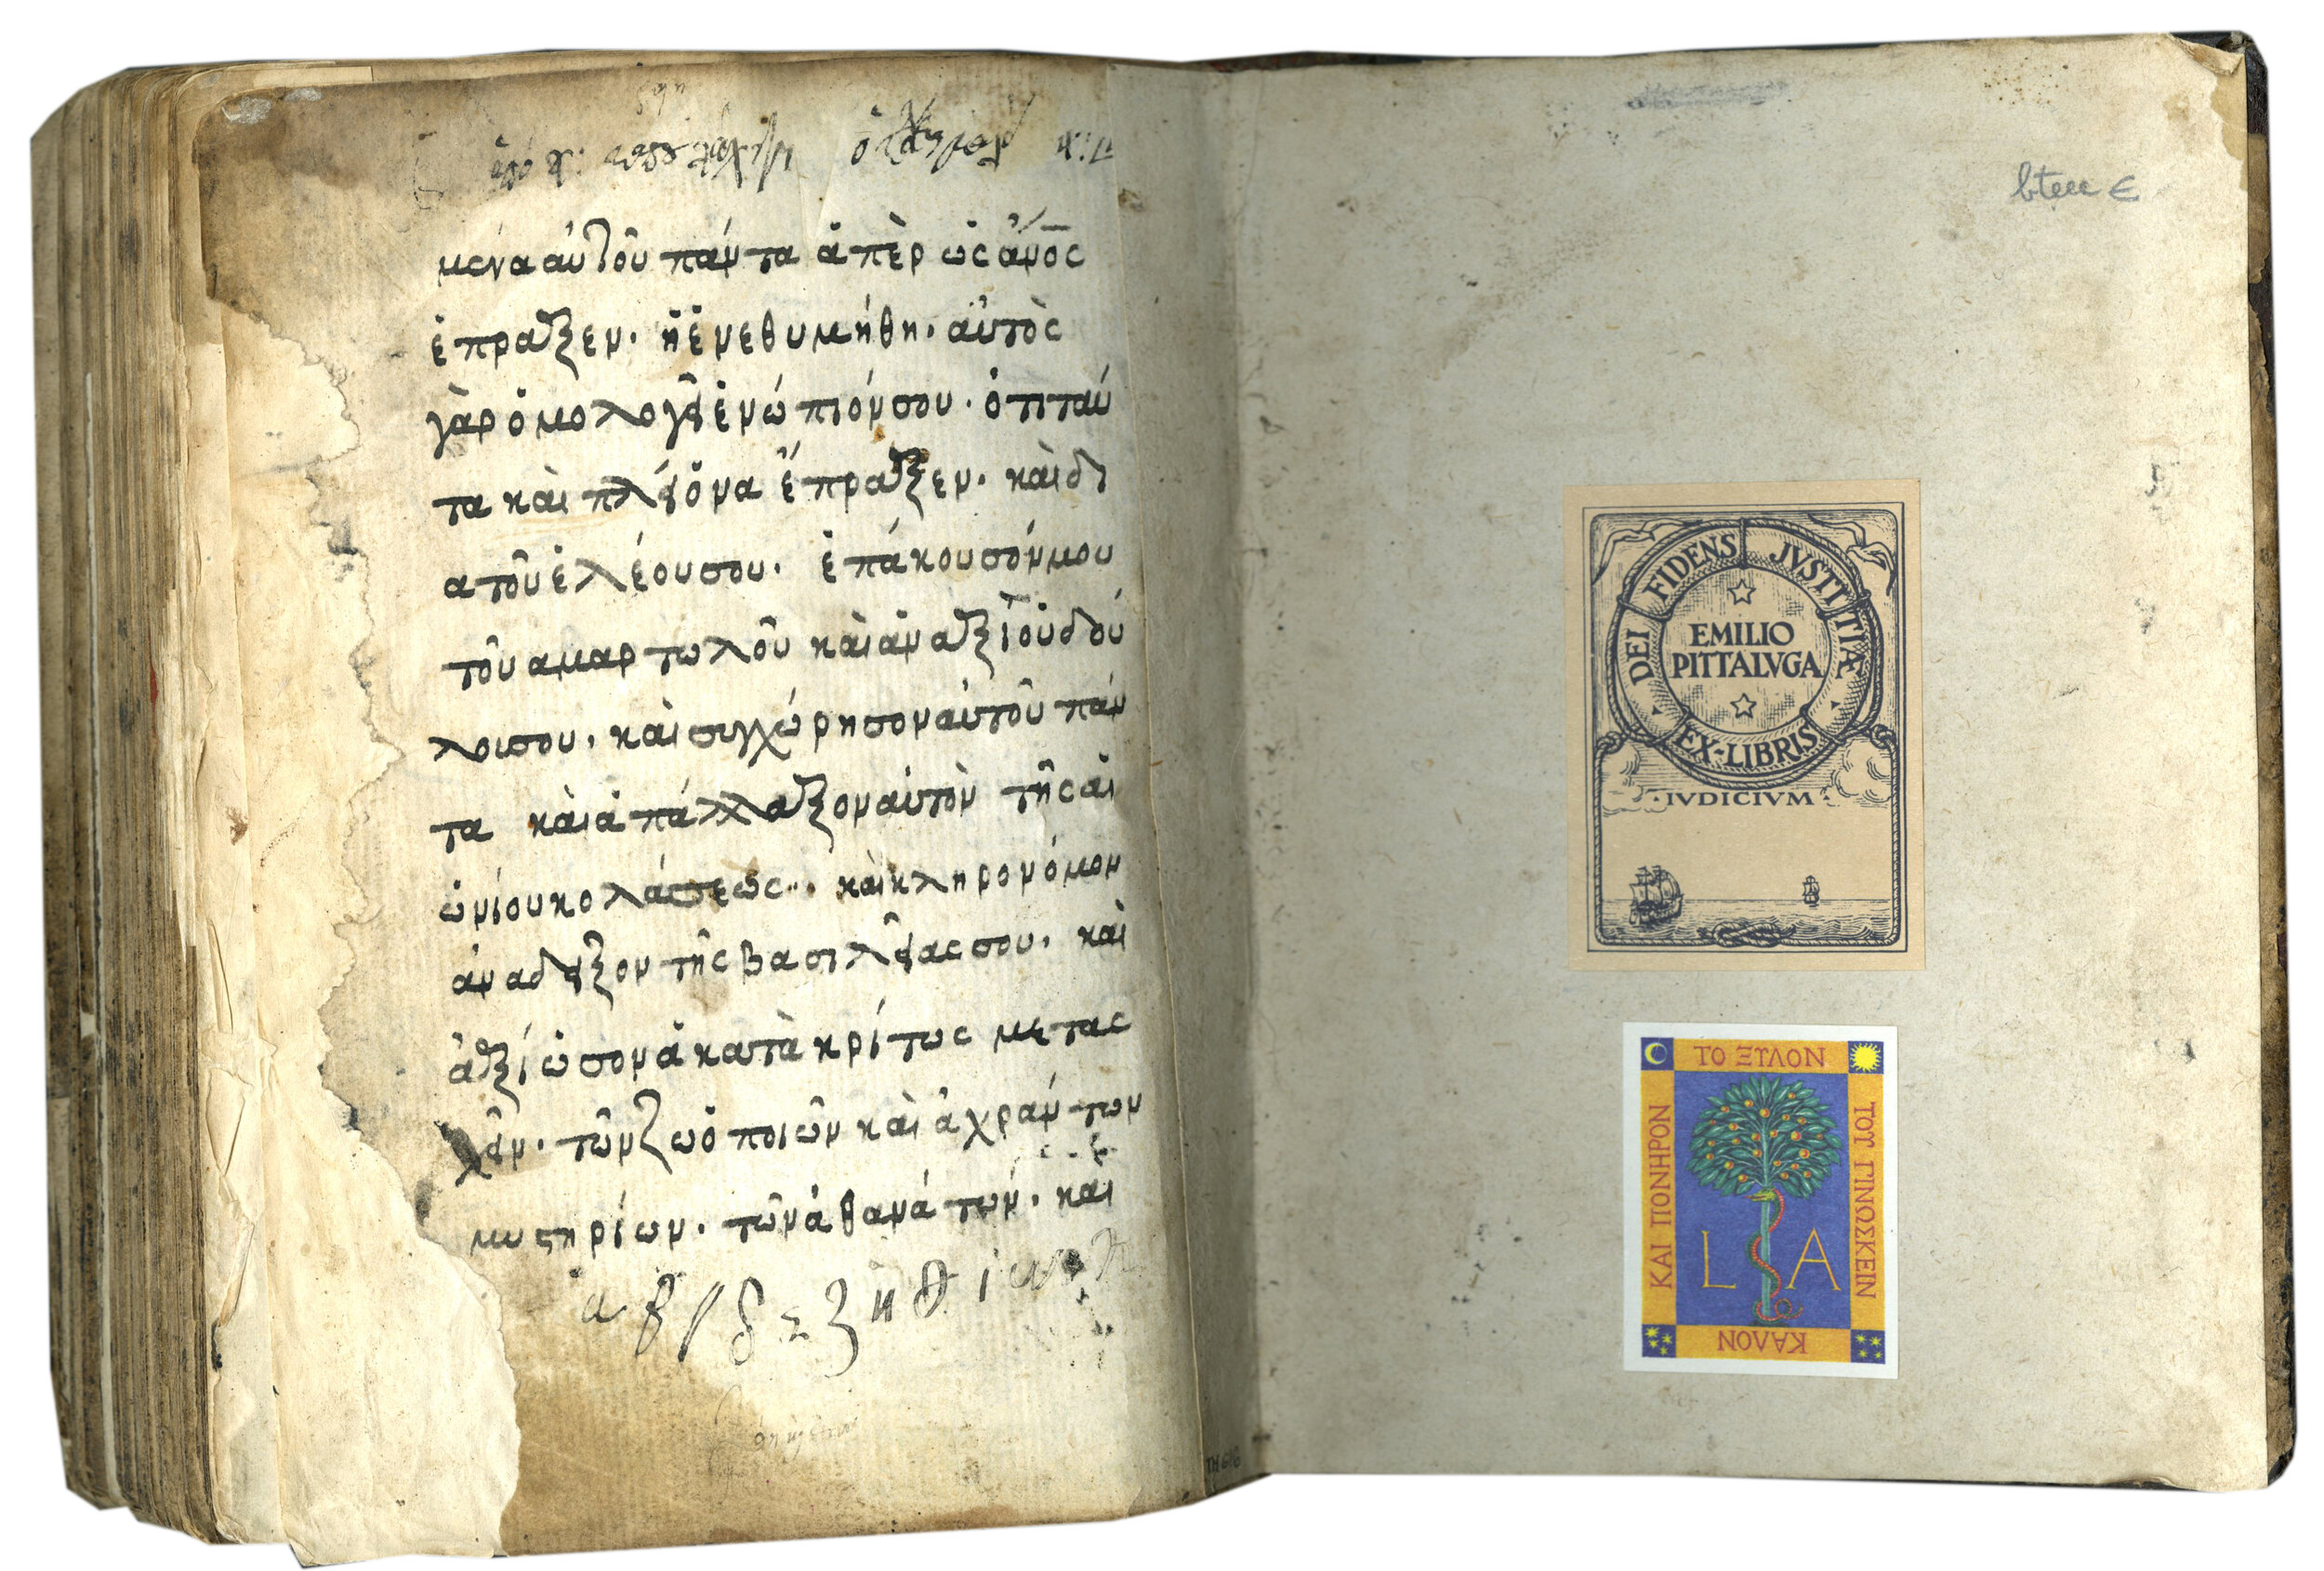 μενα αὐτοῦ πάντα ἅπὲρ ὡς ἄνο̅ς
ἔπραξεν· ἢ ἐνεθυμήθη· αὐτὸς
γὰρ ὁμολογεῖ ἐνώπιόν σου· ὅτι ταύ
τα καὶ πλείονα ἔπραξεν· καὶ δι
α τοῦ ἐλέου σου· ἐπάκουσόν μου
τοῦ αμαρτωλοῦ καὶ ἀναξίου δού
λοι σου· καὶ συγχώρησον αὐτοῦ πάν
τα καὶ ἀπάλλαξον αὐτὸν τῆς αἰ
ωνίου κολάσεως· καὶ κληρονόμον
ἀναδειξον τῆς βασιλείας σου· καὶ
ἀξίωσον ἀκατὰκρίτως μετας
χεῖν· τῶν ζωὀποιῶν καὶ ἀχράντων
μυστηρίων· τῶν ἀθανάτων· καὶ
α β γ δ ε ζ η θ ι
TH 646
bteee €
DEI FIDENS JVSTITIÆ
EMILIO
PITTALVGA
EX-LIBRIS
·IVDICIVM·
ΤΟ ΞΥΛΟΝ
ΤΟΥ ΓΙΝΩΣΚΕΙΝ
ΚΑΛΟΝ
ΚΑΙ ΠΟΝΗΡΟΝ
L A